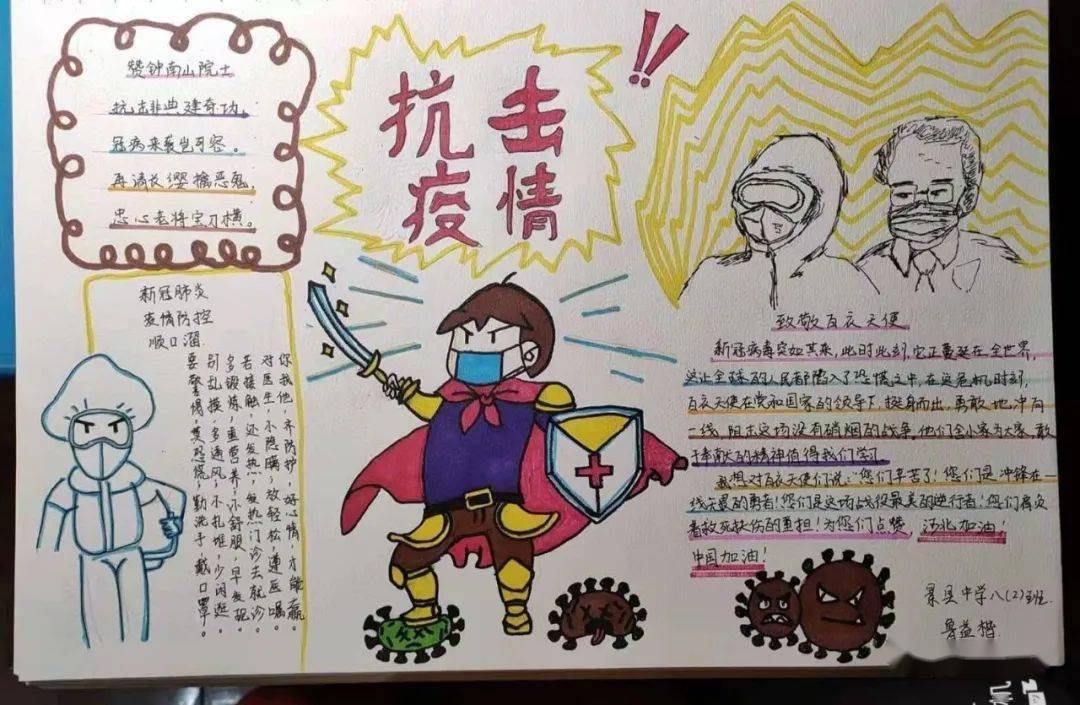 赞钟南山院士
抗击非典建奇功,
冠病来袭岂可容。
再请长缨擒恶鬼,
忠心老将宝刀横。
抗击
疫情
!!
新冠肺炎
疫情防控
顺口溜
要警惕,莫恐慌,勤洗手,戴口罩。
别乱摸,多通风,不扎堆,少闲逛。
多锻炼,重营养,小舒服,早发现
若接触,还发热,发热门诊去就诊
对医生,不隐瞒,放轻松,遵医嘱。
你我他,齐防护,好心情,才能赢。
致敬白衣天使
新冠病毒突如其来,此时此刻,它正蔓延在全世界,
这让全球的人民都陷入了恐慌之中,在这危机时刻,
白衣天使在党和国家的领导下,挺身而出,勇敢地冲向
一线,阻击这场没有硝烟的战争。他们舍小家为大家,敢
于奉献的精神值得我们学习
我想对白衣天使们说:“您们辛苦了!您们是冲锋在一
线无畏的勇者!您们是这场战役最美的逆行者!您们肩负
着救死扶伤的重担!为您们点赞,河北加油!
中国加油!
景县中学八(2)班
鲁益楷